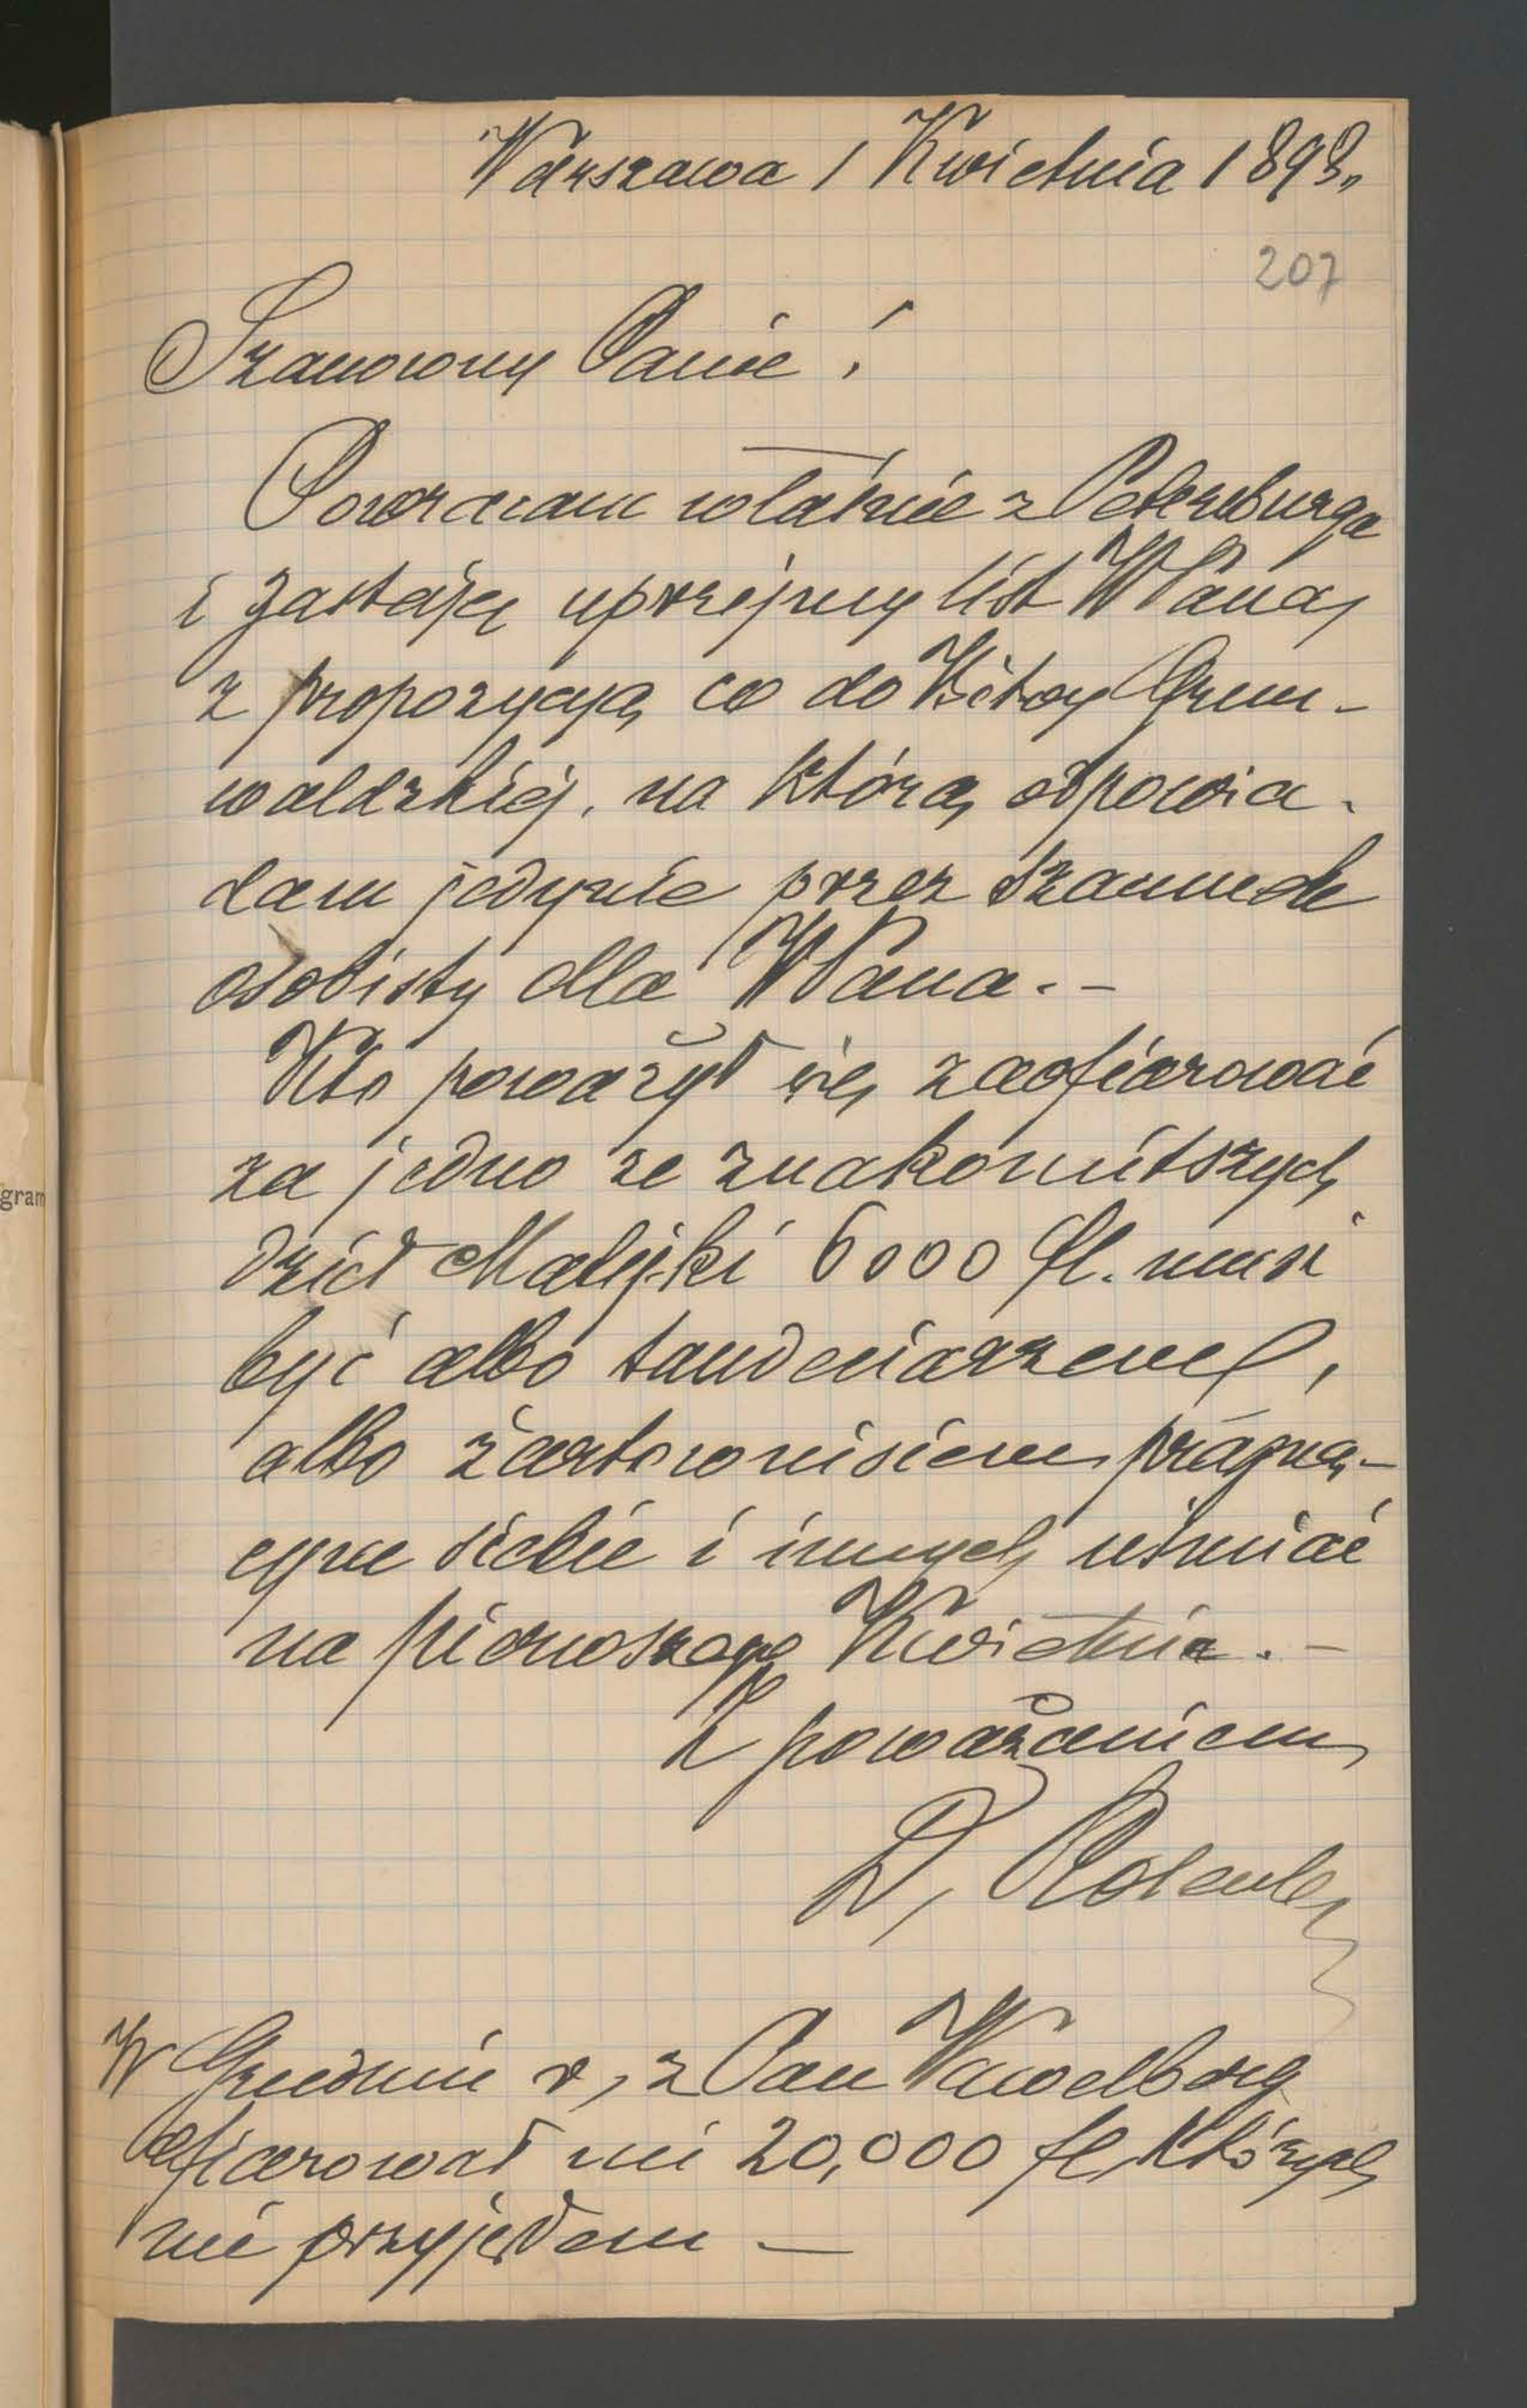 Warszawa 1 Kwietnia 1893.
207
Szanowny Panie!
Powracam właśnie z Petersburga
i zastaję uprzejmy list WPana,
z propozycyją co do Bitwy Grun-
waldzkiej, na którą odpowia-
dam jedynie przez szacunek
osobisty dla WPana. -
Kto poważył się zaofiarować
za jedno ze znakomitszych
dzieł Matejki 6000 fl. musi
być albo tandeciarzem,
albo żartownisiem pragną-
cym siebie i innych uśmiać
na pierwszego Kwietnia. -
Z poważaniem
D. Rosenb
W Grudniu r, z Pan Wawelberg
ofiarował mi 20,000 fl, których
nie przyjąłem -
gram